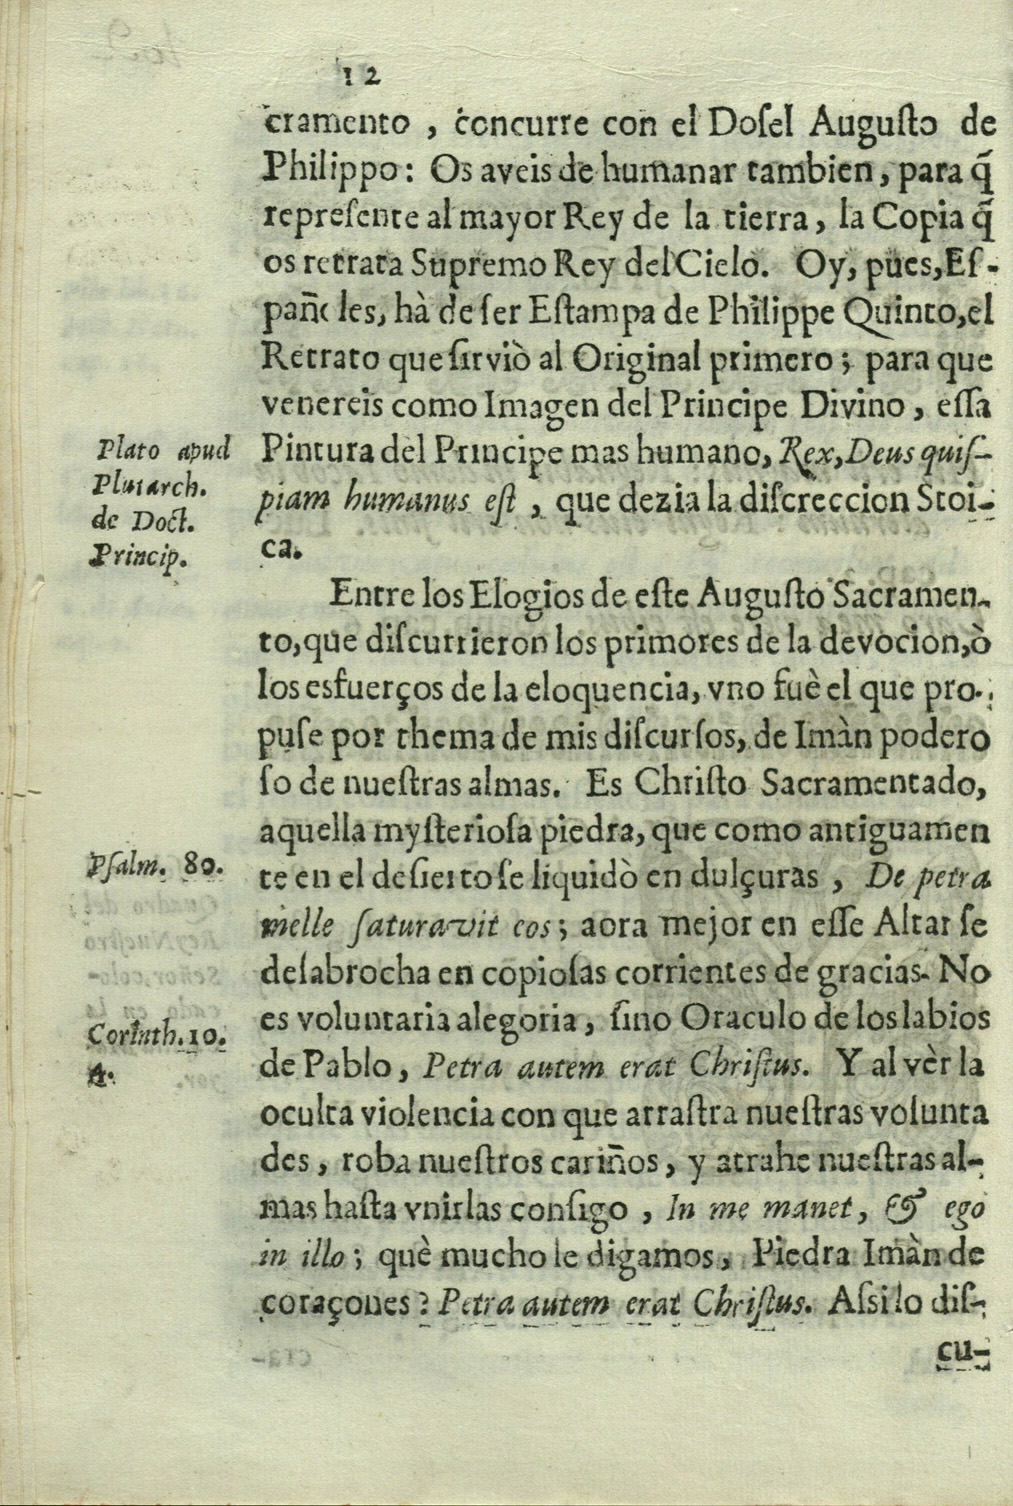 12
cramento, concurre con el Doſel Auguſto de
Philippo: Os aveis de humanar tambien, para q̃
repreſente al mayor Rey de la tierra, la Copia q̃
os retrata Supremo Rey del Cielo. Oy, pues, Eſ-
pañoles, hà de ſer Eſtampa de Philippe Quinto, el
Retrato que ſirviò al Original primero; para que
venereis como Imagen del Principe Divino, eſſa
Pintura del Principe mas humano, Rex, Deus quiſ-
piam humanus eſt, que dezia la diſcreccion Stoi-
ca.
Plato apud
Plutarch.
de Doct.
Princip.
Entre los Elogios de eſte Auguſto Sacramen-
to, que diſcurrieron los primores de la devocion, ò
los esfuerços de la eloquencia, vno fuè el que pro-
puſe por thema de mis diſcurſos, de Imàn podero
ſo de nueſtras almas. Es Chriſto Sacramentado,
aquella myſterioſa piedra, que como antiguamen
te en el deſierto ſe liquidò en dulçuras, De petra
melle ſaturavit eos; aora mejor en eſſe Altar ſe
deſabrocha en copioſas corrientes de gracias. No
es voluntaria alegoria, ſino Oraculo de los labios
de Pablo, Petra autem erat Chriſtus. Y al vèr la
oculta violencia con que arraſtra nueſtras volunta
des, roba nueſtros cariños, y atrahe nueſtras al-
mas haſta vnirlas conſigo, In me manet, & ego
in illo; què mucho le digamos, Piedra Imàn de
coraçones? Petra autem erat Chriſtus. Aſsi lo diſ-
Pſalm. 80.
Corinth. 10.
4.
cu-